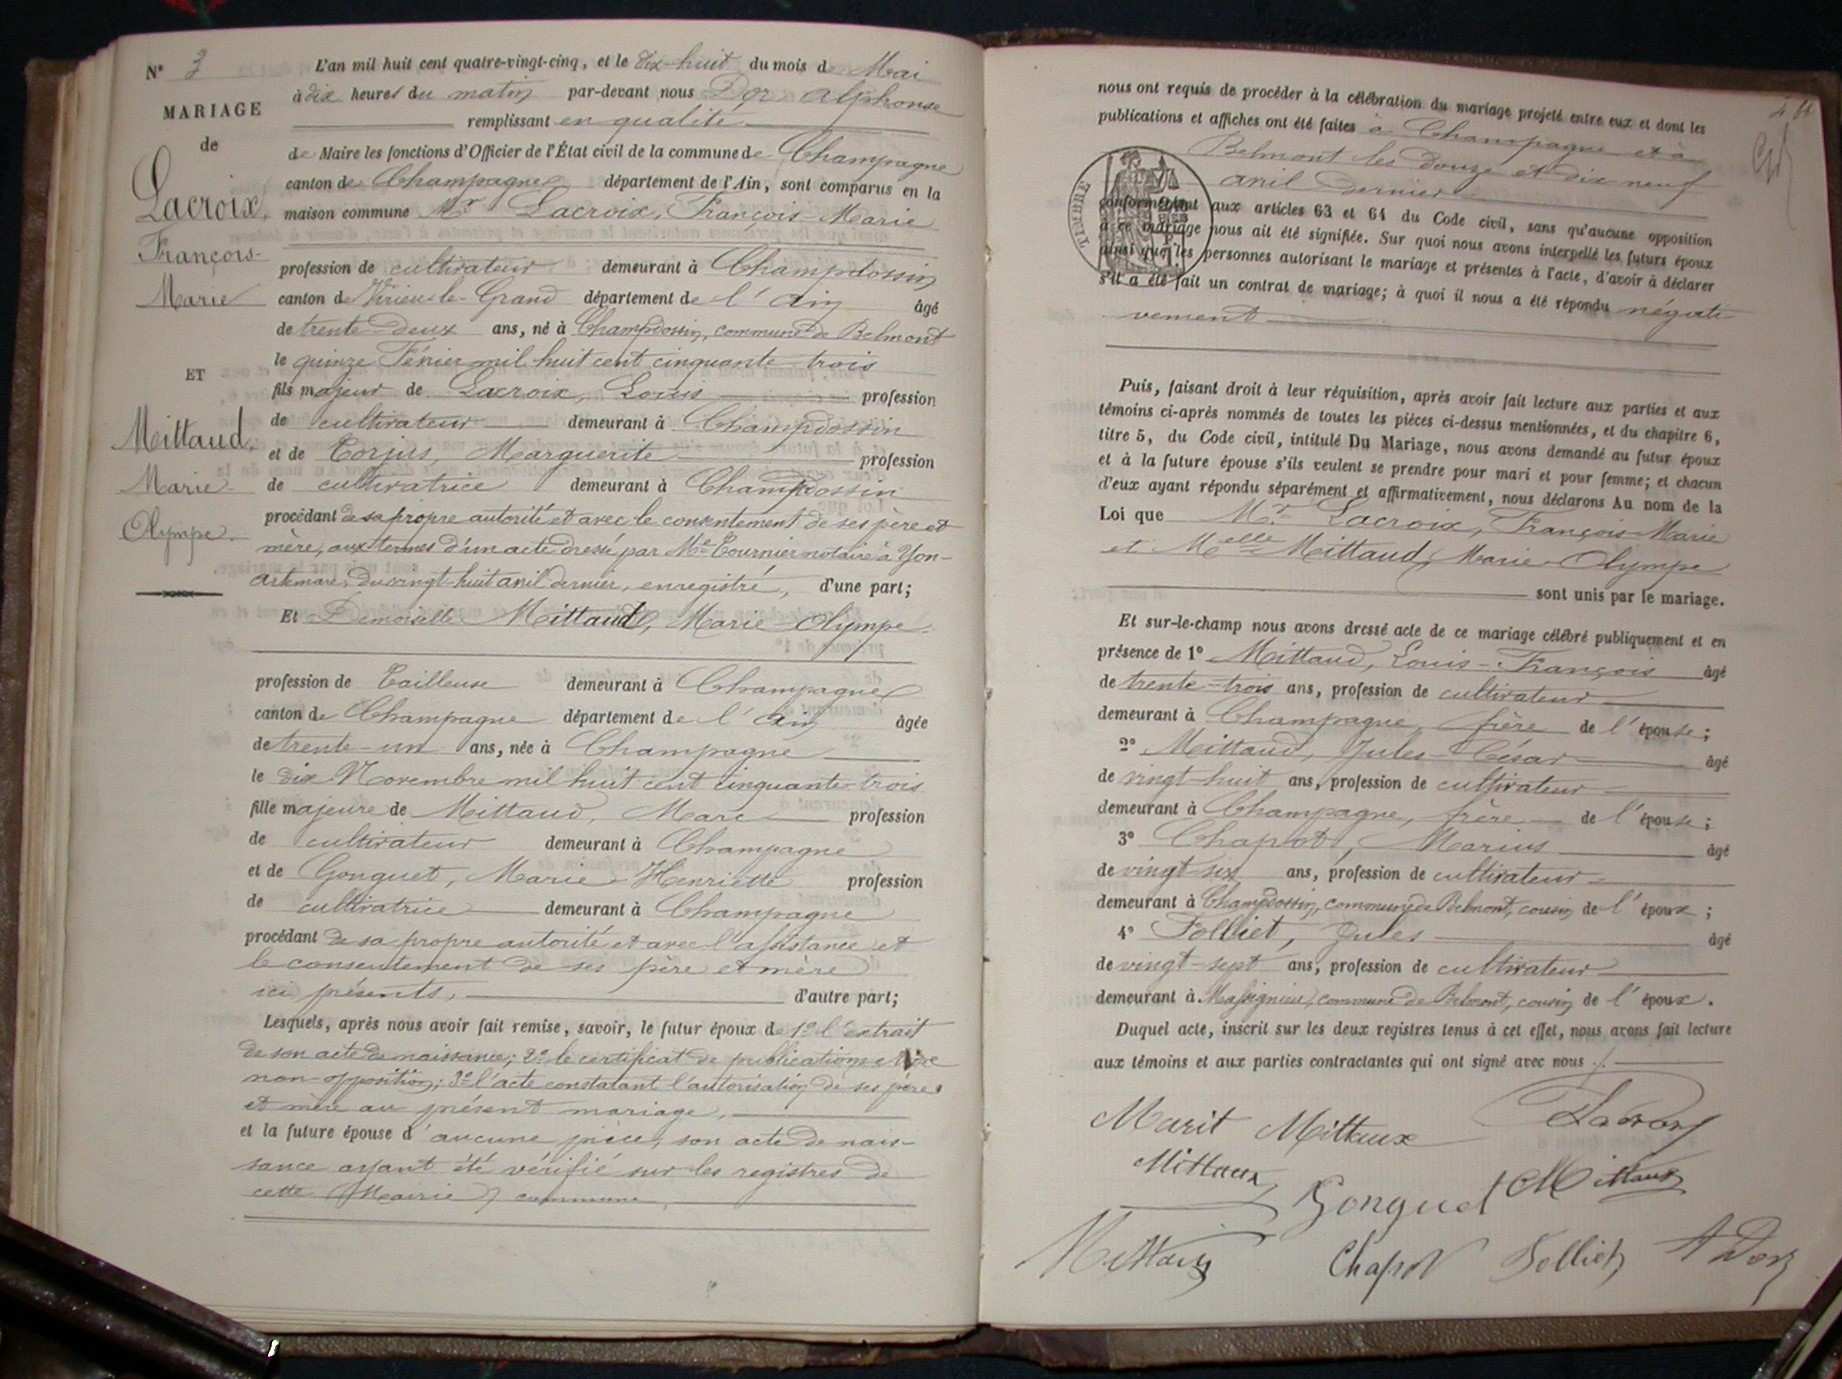 N° 3
MARIAGE
de
Lacroix,
François-
Marie
ET
Mittaud,
Marie-
Olympe.
L'an mil huit cent quatre-vingt-cinq, et le dix-huit du mois de Mai
à dix heures du matin par-devant nous Dor Alphonse
remplissant en qualité
de Maire les fonctions d'Officier de l'État civil de la commune de Champagne
canton de Champagne département de l'Ain, sont comparus en la
maison commune Mr Lacroix, François-Marie
profession de cultivateur demeurant à Champdossin
canton de Virieu-le-Grand département de l'Ain âgé
de trente deux ans, né à Champdossin, commune de Belmont
le quinze Février mil huit cent cinquante-trois
fils majeur de Lacroix, Louis profession
de cultivateur demeurant à Champdossin
et de Marguerite profession
de cultivatrice demeurant à Champdossin
procédant de sa propre autorité et avec le consentement de ses père et
mère, aux termes d'un acte dressé par Me Tournier notaire à Yon-
Artemare, du vingt-huit avril dernier, enregistré, d'une part;
Et Demoiselle Mittaud, Marie-Olympe.
profession de Tailleuse demeurant à Champagne
canton de Champagne département de l'Ain âgée
de trente-un ans, née à Champagne
le dix Novembre mil huit cent cinquante-trois
fille majeure de Mittaud, Marc profession
de cultivateur demeurant à Champagne
et de Gonguet, Marie-Henriette profession
de cultivatrice demeurant à Champagne
procédant de sa propre autorité et avec l'assistance et
le consentement de ses père et mère
ici présents, d'autre part;
Lesquels, après nous avoir fait remise, savoir, le futur époux de 1° l'extrait
de son acte de naissance; 2° le certificat de publications et de
non-opposition; 3° l'acte constatant l'autorisation de ses père
et mère au présent mariage,
et la future épouse d'aucune pièce, son acte de nais-
sance ayant été vérifié sur les registres de
cette Mairie commune,
nous ont requis de procéder à la célébration du mariage projeté entre eux et dont les
publications et affiches ont été faites à Champagne et à
Belmont les douze et dix neuf
avril dernier
TIMBRE
conformément aux articles 63 et 64 du Code civil, sans qu'aucune opposition
à ce mariage nous ait été signifiée. Sur quoi nous avons interpellé les futurs époux
ainsi que les personnes autorisant le mariage et présentes à l'acte, d'avoir à déclarer
s'il a été fait un contrat de mariage; à quoi il nous a été répondu négati-
vement
Puis, faisant droit à leur réquisition, après avoir fait lecture aux parties et aux
témoins ci-après nommés de toutes les pièces ci-dessus mentionnées, et du chapitre 6,
titre 5, du Code civil, intitulé Du Mariage, nous avons demandé au futur époux
et à la future épouse s'ils veulent se prendre pour mari et pour femme; et chacun
d'eux ayant répondu séparément et affirmativement, nous déclarons Au nom de la
Loi que Mr Lacroix, François-Marie
et Melle Mittaud, Marie-Olympe
sont unis par le mariage.
Et sur-le-champ nous avons dressé acte de ce mariage célébré publiquement et en
présence de 1° Mittaud, Louis-François âgé
de trente-trois ans, profession de cultivateur
demeurant à Champagne, frère de l'épouse;
2° Mittaud, Jules-César âgé
de vingt-huit ans, profession de cultivateur
demeurant à Champagne, frère de l'épouse;
3° Chapot, Marius âgé
de vingt-six ans, profession de cultivateur
demeurant à Champdossin, commune de Belmont, cousin de l'époux;
4° Folliet, Jules âgé
de vingt-sept ans, profession de cultivateur
demeurant à Massignieu, commune de Belmont, cousin de l'époux.
Duquel acte, inscrit sur les deux registres tenus à cet effet, nous avons fait lecture
aux témoins et aux parties contractantes qui ont signé avec nous
Marit Mittaux
Gonguet
Chapot Folliet A Dor